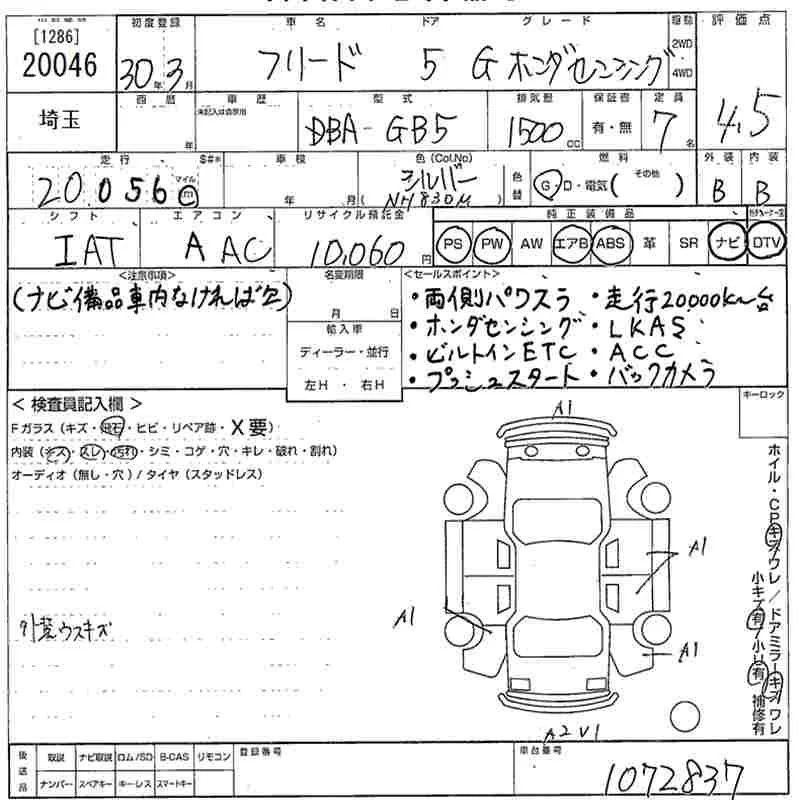 [1286]
20046
初度登録
車名
ドア
グレード
駆動
評価点
30年3月
フリード
5
G ホンダセンシング
2WD
4WD
4.5
埼玉
西暦
年
車歴
未記入は自家用
型式
DBA-GB5
排気量
1500cc
保証書
有・無
定員
7名
走行
$#*
20,056
マイル
km
車検
年 月(
色(Col.No)
シルバー
NH830M )
色替
燃料
G・D・電気( その他 )
外装
B
内装
B
シフト
IAT
エアコン
AAC
リサイクル預託金
10,060円
純正装備品
PS PW AW エアB ABS 革 SR ナビ DTV
<注意事項>
(ナビ備品車内なければ欠)
名変期限
月 日
輸入車
ディーラー・並行
左H・右H
<セールスポイント>
・両側パワスラ ・走行20000k~台
・ホンダセンシング ・LKAS
・ビルトインETC ・ACC
・プッシュスタート ・バックカメラ
キーロック
<検査員記入欄>
Fガラス(キズ・飛石・ヒビ・リペア跡・X要)
内装(キズ・スレ・汚れ・シミ・コゲ・穴・キレ・破れ・割れ)
オーディオ(無し・穴)/タイヤ(スタッドレス)
外装ウスキズ
A1
A1
A1
A1
A2 U1
ホイル・CPキズワレ/ドアミラーキズワレ
小キズ有/小U有 補修有
後送品
取説 ナビ取説 ロム/SD B-CAS リモコン
ナンバー スペアキー キーレス スマートキー
登録番号
車台番号
1072837